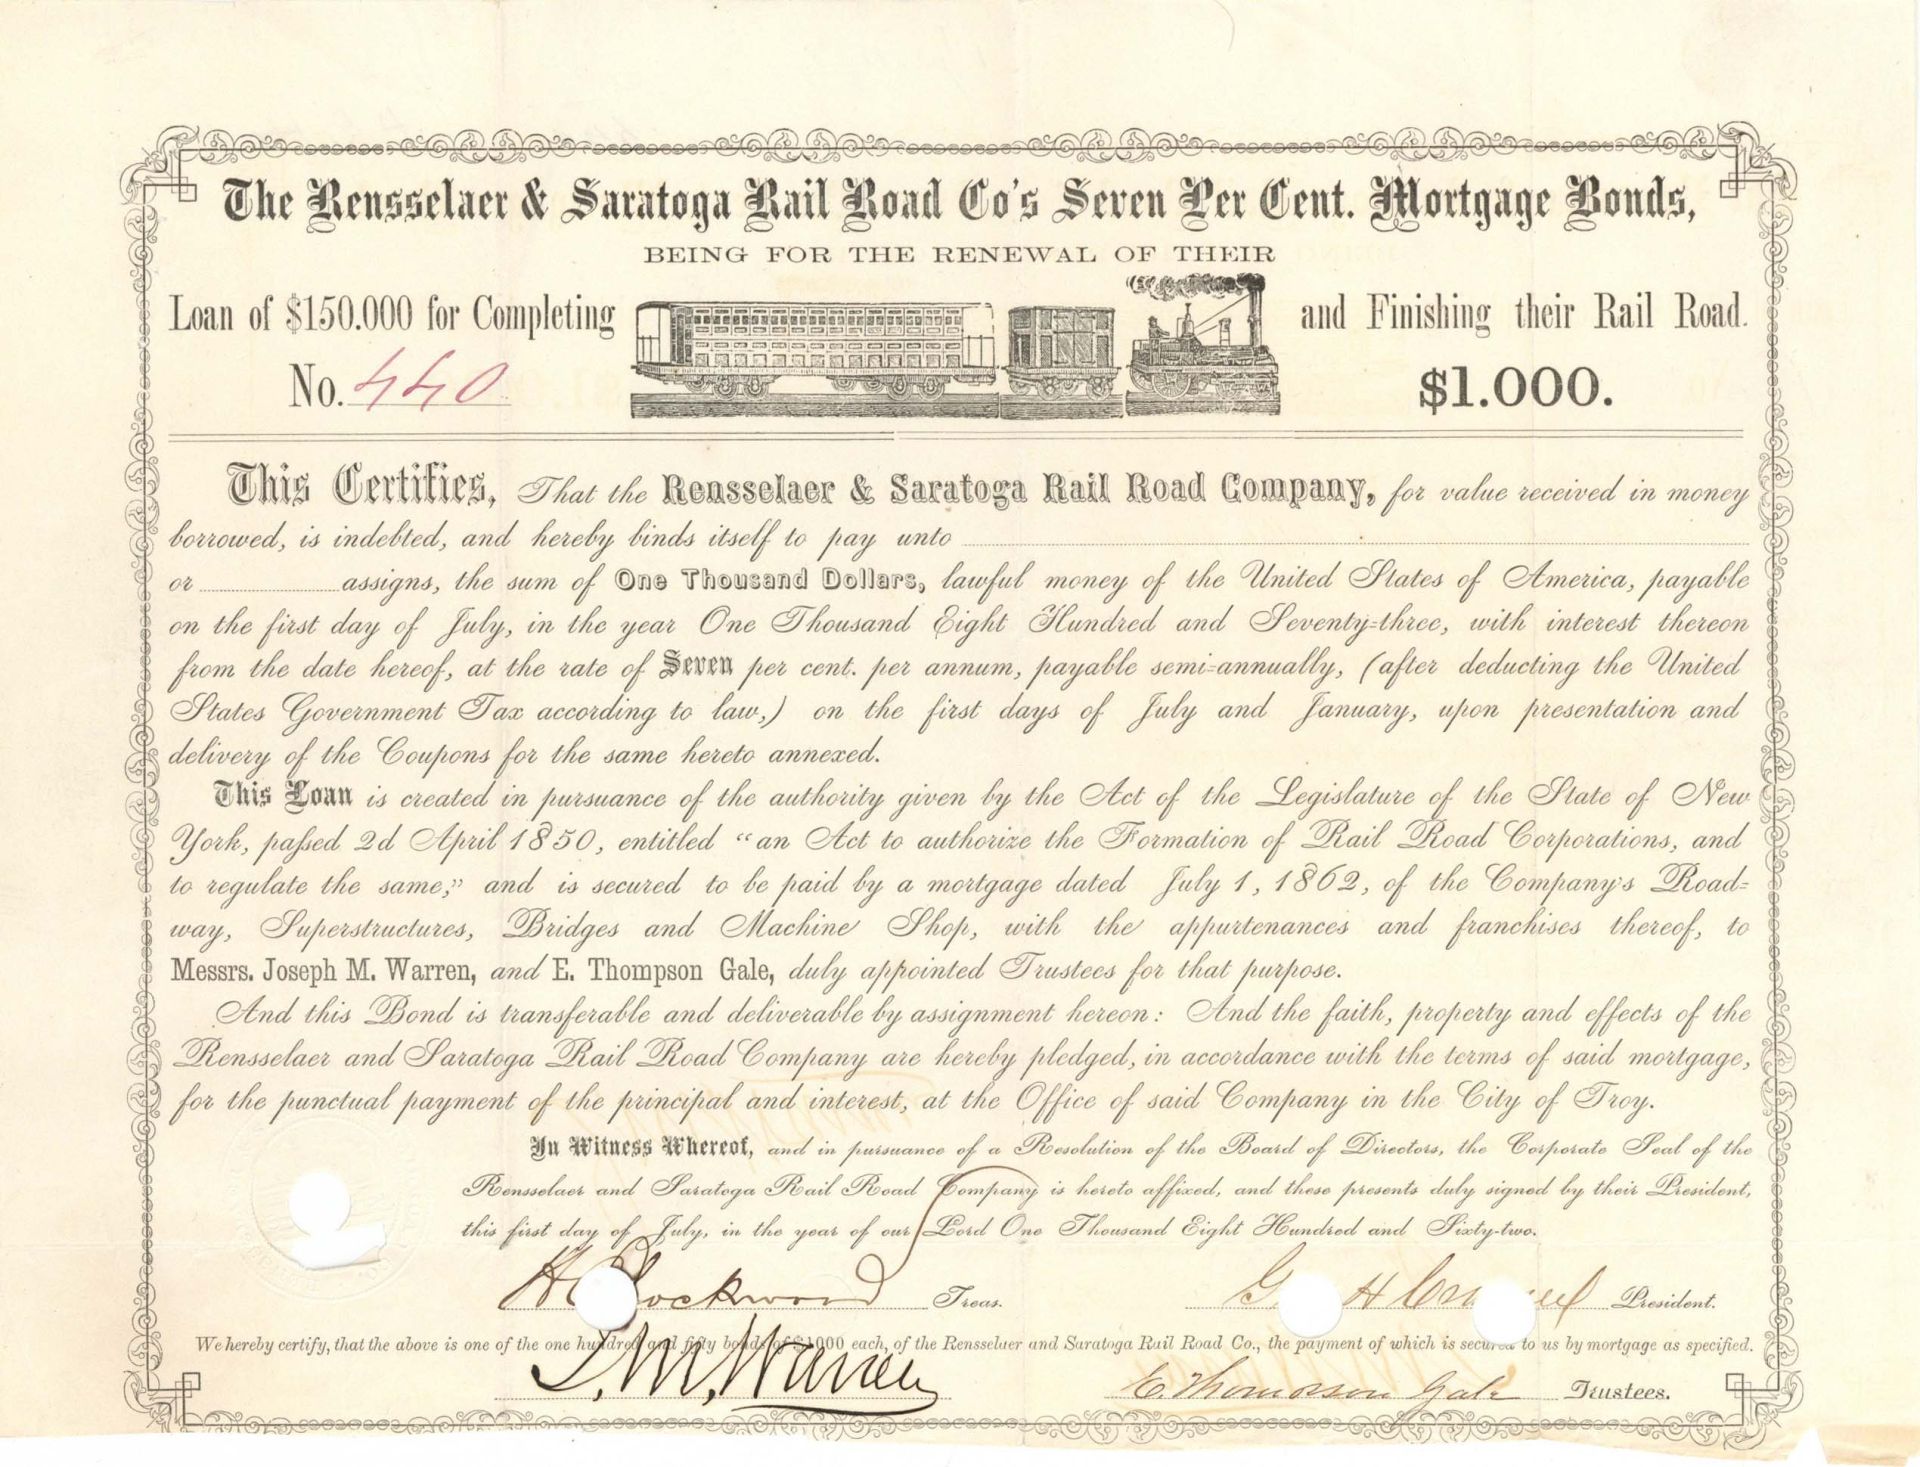 The Rensselaer & Saratoga Rail Road Co's Seven Per Cent. Mortgage Bonds,
BEING FOR THE RENEWAL OF THEIR
Loan of $150.000 for Completing and Finishing their Rail Road.
No. 440 $1.000.
This Certifies, That the Rensselaer & Saratoga Rail Road Company, for value received in money
borrowed, is indebted, and hereby binds itself to pay unto
or assigns, the sum of One Thousand Dollars, lawful money of the United States of America, payable
on the first day of July, in the year One Thousand Eight Hundred and Seventy=three, with interest thereon
from the date hereof, at the rate of Seven per cent. per annum, payable semi=annually, (after deducting the United
States Government Tax according to law,) on the first days of July and January, upon presentation and
delivery of the Coupons for the same hereto annexed.
This Loan is created in pursuance of the authority given by the Act of the Legislature of the State of New
York, passed 2d April 1850, entitled "an Act to authorize the Formation of Rail Road Corporations, and
to regulate the same," and is secured to be paid by a mortgage dated July 1, 1862, of the Company's Road=
way, Superstructures, Bridges and Machine Shop, with the appurtenances and franchises thereof, to
Messrs. Joseph M. Warren, and E. Thompson Gale, duly appointed Trustees for that purpose.
And this Bond is transferable and deliverable by assignment hereon: And the faith, property and effects of the
Rensselaer and Saratoga Rail Road Company are hereby pledged, in accordance with the terms of said mortgage,
for the punctual payment of the principal and interest, at the Office of said Company in the City of Troy.
In Witness Whereof, and in pursuance of a Resolution of the Board of Directors, the Corporate Seal of the
Rensselaer and Saratoga Rail Road Company is hereto affixed, and these presents duly signed by their President,
this first day of July, in the year of our Lord One Thousand Eight Hundred and Sixty-two.
Lockwood Treas. G. H Cramer President.
We hereby certify, that the above is one of the one hundred and fifty bonds of $1000 each, of the Rensselaer and Saratoga Rail Road Co., the payment of which is secured to us by mortgage as specified.
J. M. Warren E. Thompson Gale Trustees.